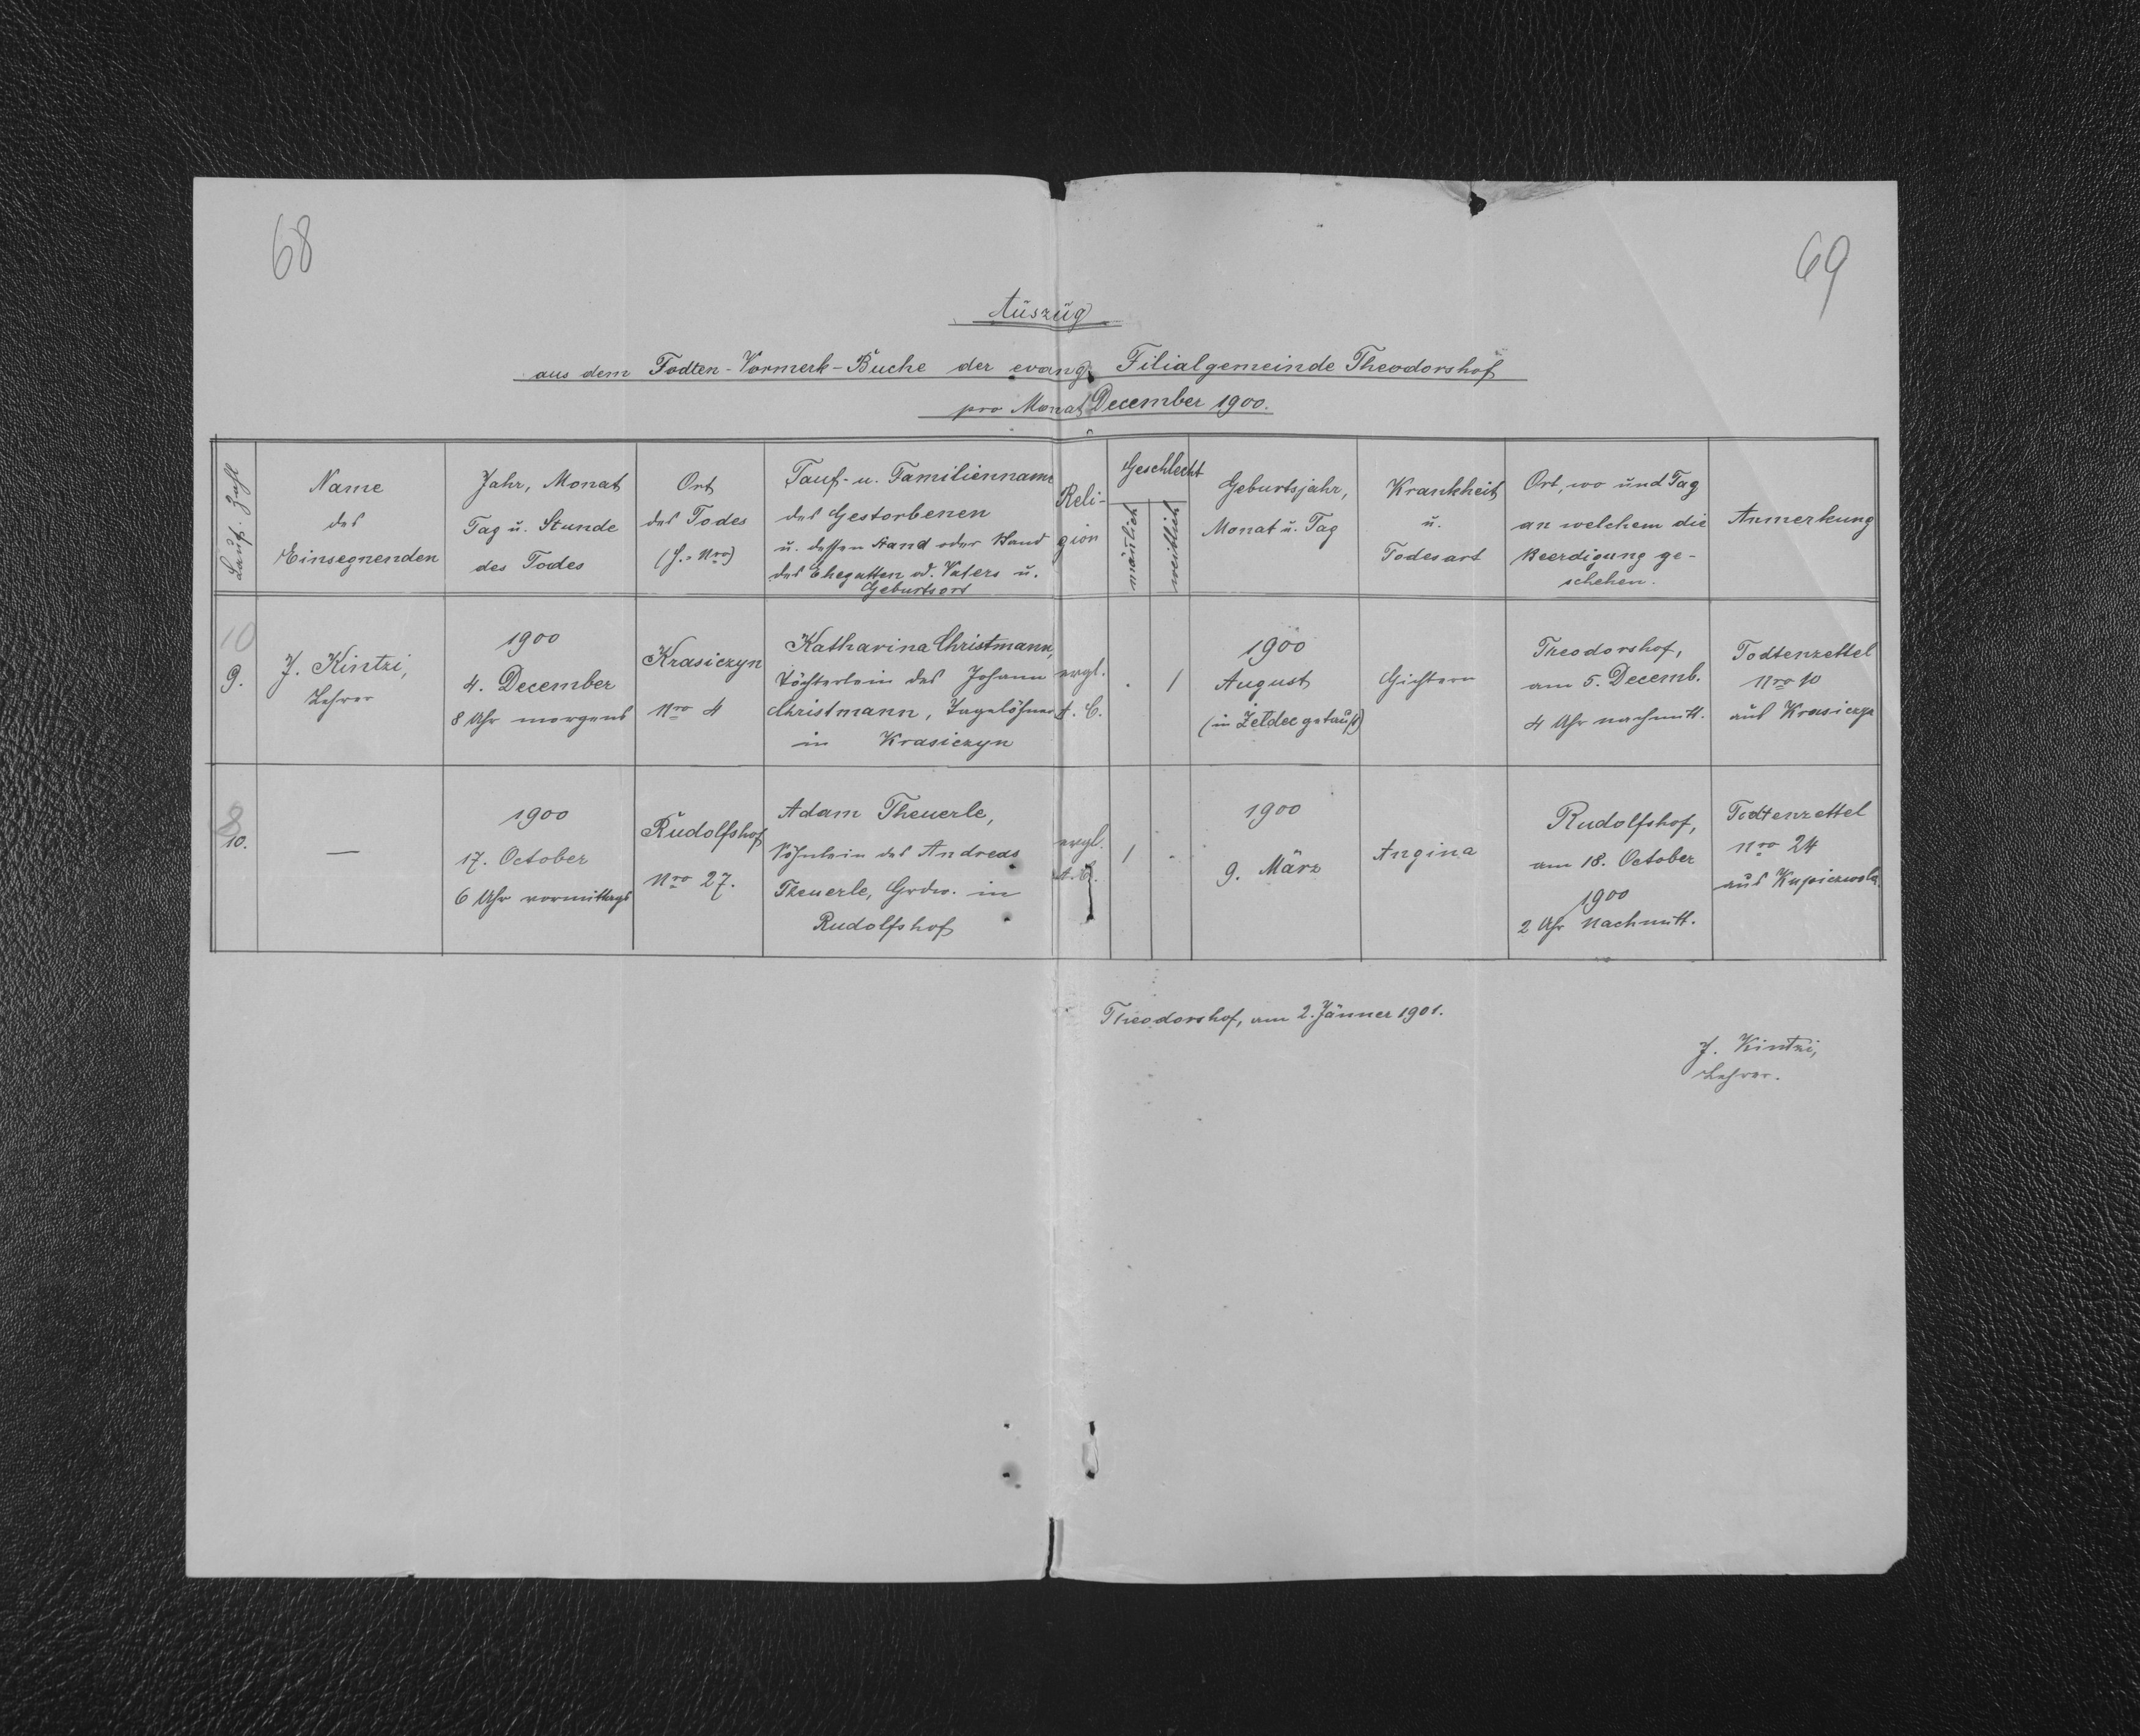 68
69
Auszug
aus dem Todten-Vormerk-Buche der evang. Filialgemeinde Theodorshof
pro Monat December 1900.
Lauf. Zahl
Name
des
Einsegnenden
Jahr, Monat
Tag u. Stunde
des Todes
Ort
des Todes
(H.-Nro)
Tauf- u. Familienname
des Gestorbenen
u. dessen Stand oder Stand
des Ehegatten od. Vaters u.
Geburtsort
Reli-
gion
Geschlecht
männlich
weiblich
Geburtsjahr,
Monat u. Tag
Krankheit
u.
Todesart
Ort, wo und Tag
an welchem die
Beerdigung ge-
schehen.
Anmerkung
10
9.
J. Kintzi,
Lehrer
1900
4. December
8 Uhr morgens
Krasiczyn
Nro 4
Katharina Christmann,
Töchterlein des Johann
Christmann, Tagelöhner
in Krasiczyn
evgl.
A. C.
.
1
1900
August
(in Zeldec getauft)
Gichtern
Theodorshof,
am 5. Decemb.
4 Uhr nachmitt.
Todtenzettel
Nro 10
aus Krasiczyn
8
10.
—
1900
17. October
6 Uhr vormittags
Rudolfshof
Nro 27.
Adam Theuerle,
Söhnlein des Andreas
Theuerle, Grdw. in
Rudolfshof
evgl.
A. C.
1
.
1900
9. März
Angina
Rudolfshof,
am 18. October
1900
2 Uhr Nachmitt.
Todtenzettel
Nro 24
aus Kupiczwola
Theodorshof, am 2. Jänner 1901.
J. Kintzi,
Lehrer.